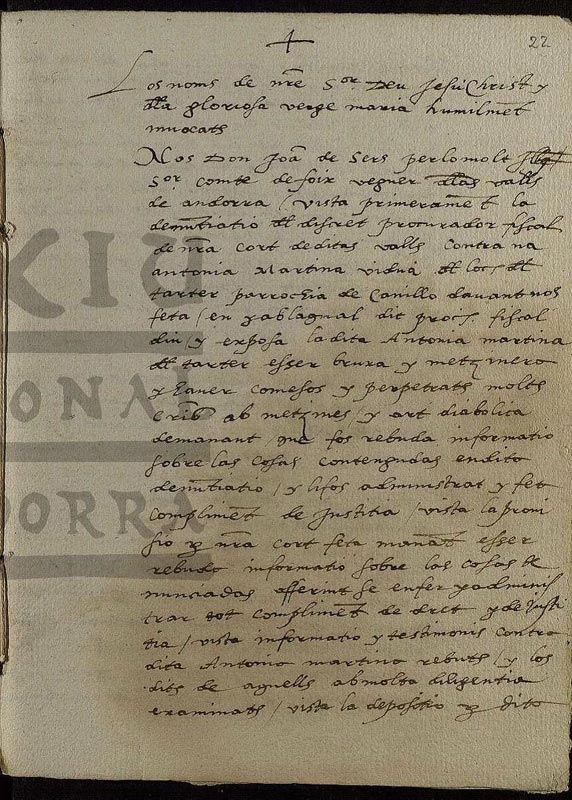 22
Los noms de nre Sor Deu Jesu Christ y
dla gloriosa verge maria humilmet
invocats
Nos Don Joã de Sers per lo molt
Sor comte de foix veguer dlas valls
de andorra / vista primeramẽt la
denũtiatio dl discret procurador fiscal
de nra cort de ditas valls contra na
antonia Martina viduã dl loc dl
tarter parrochia de Canillo davant nos
feta / en ab la qual dit proc. fiscal
diu / y exposa la dita Antonia martina
dl tarter esser bruxa y metzinera
y haver comesos y perpetrats molts
crĩs ab metzines / y art diabolica
demanant que fos rebuda informatio
sobre las cosas contengudas en dita
denũtiatio / y li fos administrat y fet
compliment de Justitia / vista la provi
sio p nra cort feta manãt esser
rebuda informatio sobre las cosas de
nunciadas offerint se en fer y adminis
trar tot compliment de dret y de Justi
tia / vista informatio y testimonis contra
dita Antonia martina rebuts / y los
dits de aquells ab molta diligentia
examinats / vista la depositio p dita
ARXIU
NACIONAL
ANDORRA